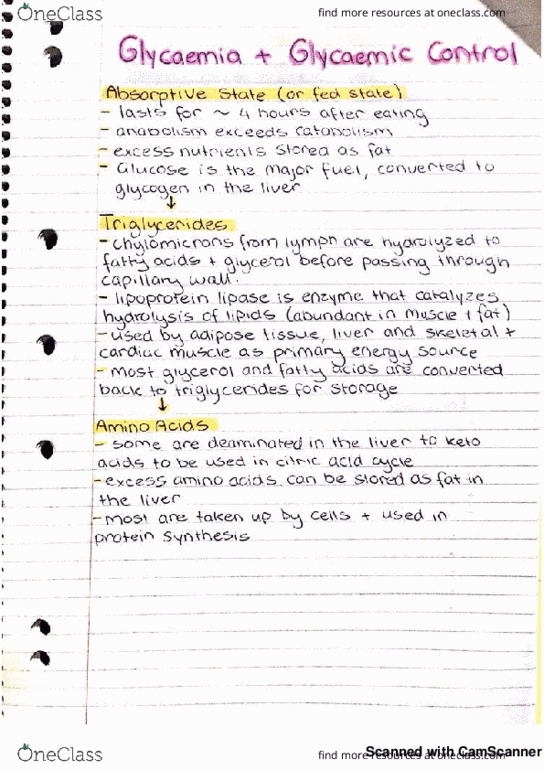 OneClass
find more resources at oneclass.com
Glycaemia + Glycaemic Control
Absorptive State (or fed state)
- lasts for ~ 4 hours after eating
- anabolism exceeds catabolism
- excess nutrients stored as fat
- Glucose is the major fuel, converted to
glycogen in the liver
↓
Triglycerides
- chylomicrons from lymph are hydrolyzed to
fatty acids + glycerol before passing through
capillary wall.
- lipoprotein lipase is enzyme that catalyzes
hydrolysis of lipids (abundant in muscle + fat)
- used by adipose tissue, liver and skeletal +
cardiac muscle as primary energy source
- most glycerol and fatty acids are converted
back to triglycerides for storage
↓
Amino Acids
- some are deaminated in the liver to keto
acids to be used in citric acid cycle
- excess amino acids can be stored as fat in
the liver
- most are taken up by cells + used in
protein synthesis
OneClass
find more resources at oneclass.com
Scanned with CamScanner